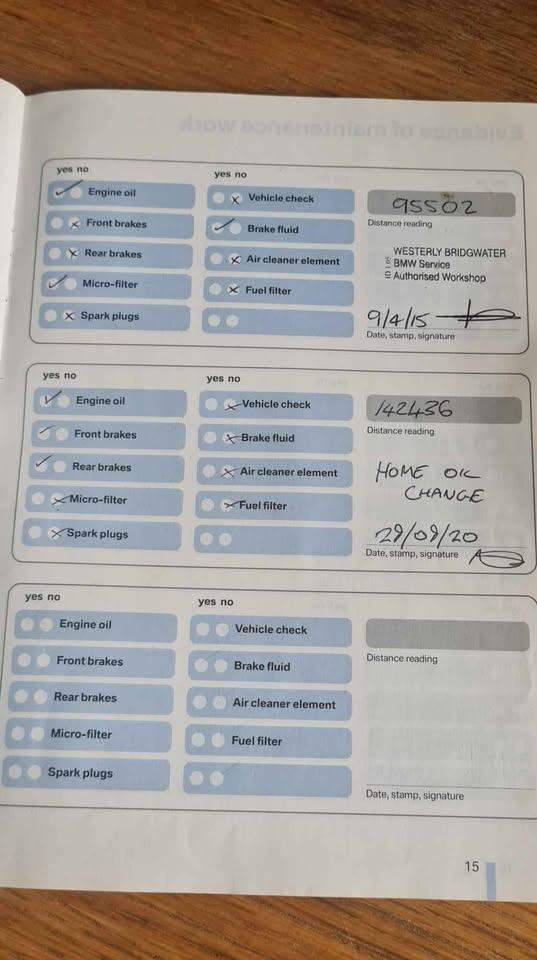 Evidence of maintenance work
yes no
yes no
Engine oil
Front brakes
Rear brakes
Micro-filter
Spark plugs
Vehicle check
Brake fluid
Air cleaner element
Fuel filter
95502
Distance reading
WESTERLY BRIDGWATER
BMW Service
Authorised Workshop
9/4/15
Date, stamp, signature
yes no
yes no
Engine oil
Front brakes
Rear brakes
Micro-filter
Spark plugs
Vehicle check
Brake fluid
Air cleaner element
Fuel filter
142436
Distance reading
HOME OIL
CHANGE
29/09/20
Date, stamp, signature
yes no
yes no
Engine oil
Front brakes
Rear brakes
Micro-filter
Spark plugs
Vehicle check
Brake fluid
Air cleaner element
Fuel filter
Distance reading
Date, stamp, signature
15